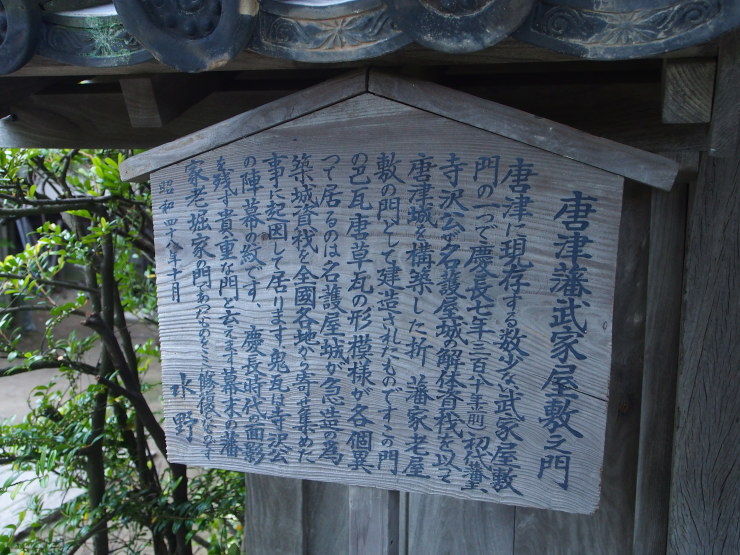 唐津藩武家屋敷之門
唐津に現存する数少ない武家屋敷
門の一つで慶長七年三百七十年前 初代藩主
寺沢公が名護屋城の解体資材を以て
唐津城を構築した折、藩家老屋
敷の門として建造されたものですこの門
の巴瓦唐草瓦の形模様が各個異
つて居るのは名護屋城が急造の為
築城資材を全國各地から寄せ集めた
事に起因して居ります鬼瓦は寺沢公
の陣幕の紋です、慶長時代の面影
を残す貴重な門と云えます幕末の藩
家老堀家の門であつたものをここに修復
昭和四十八年十月
水野